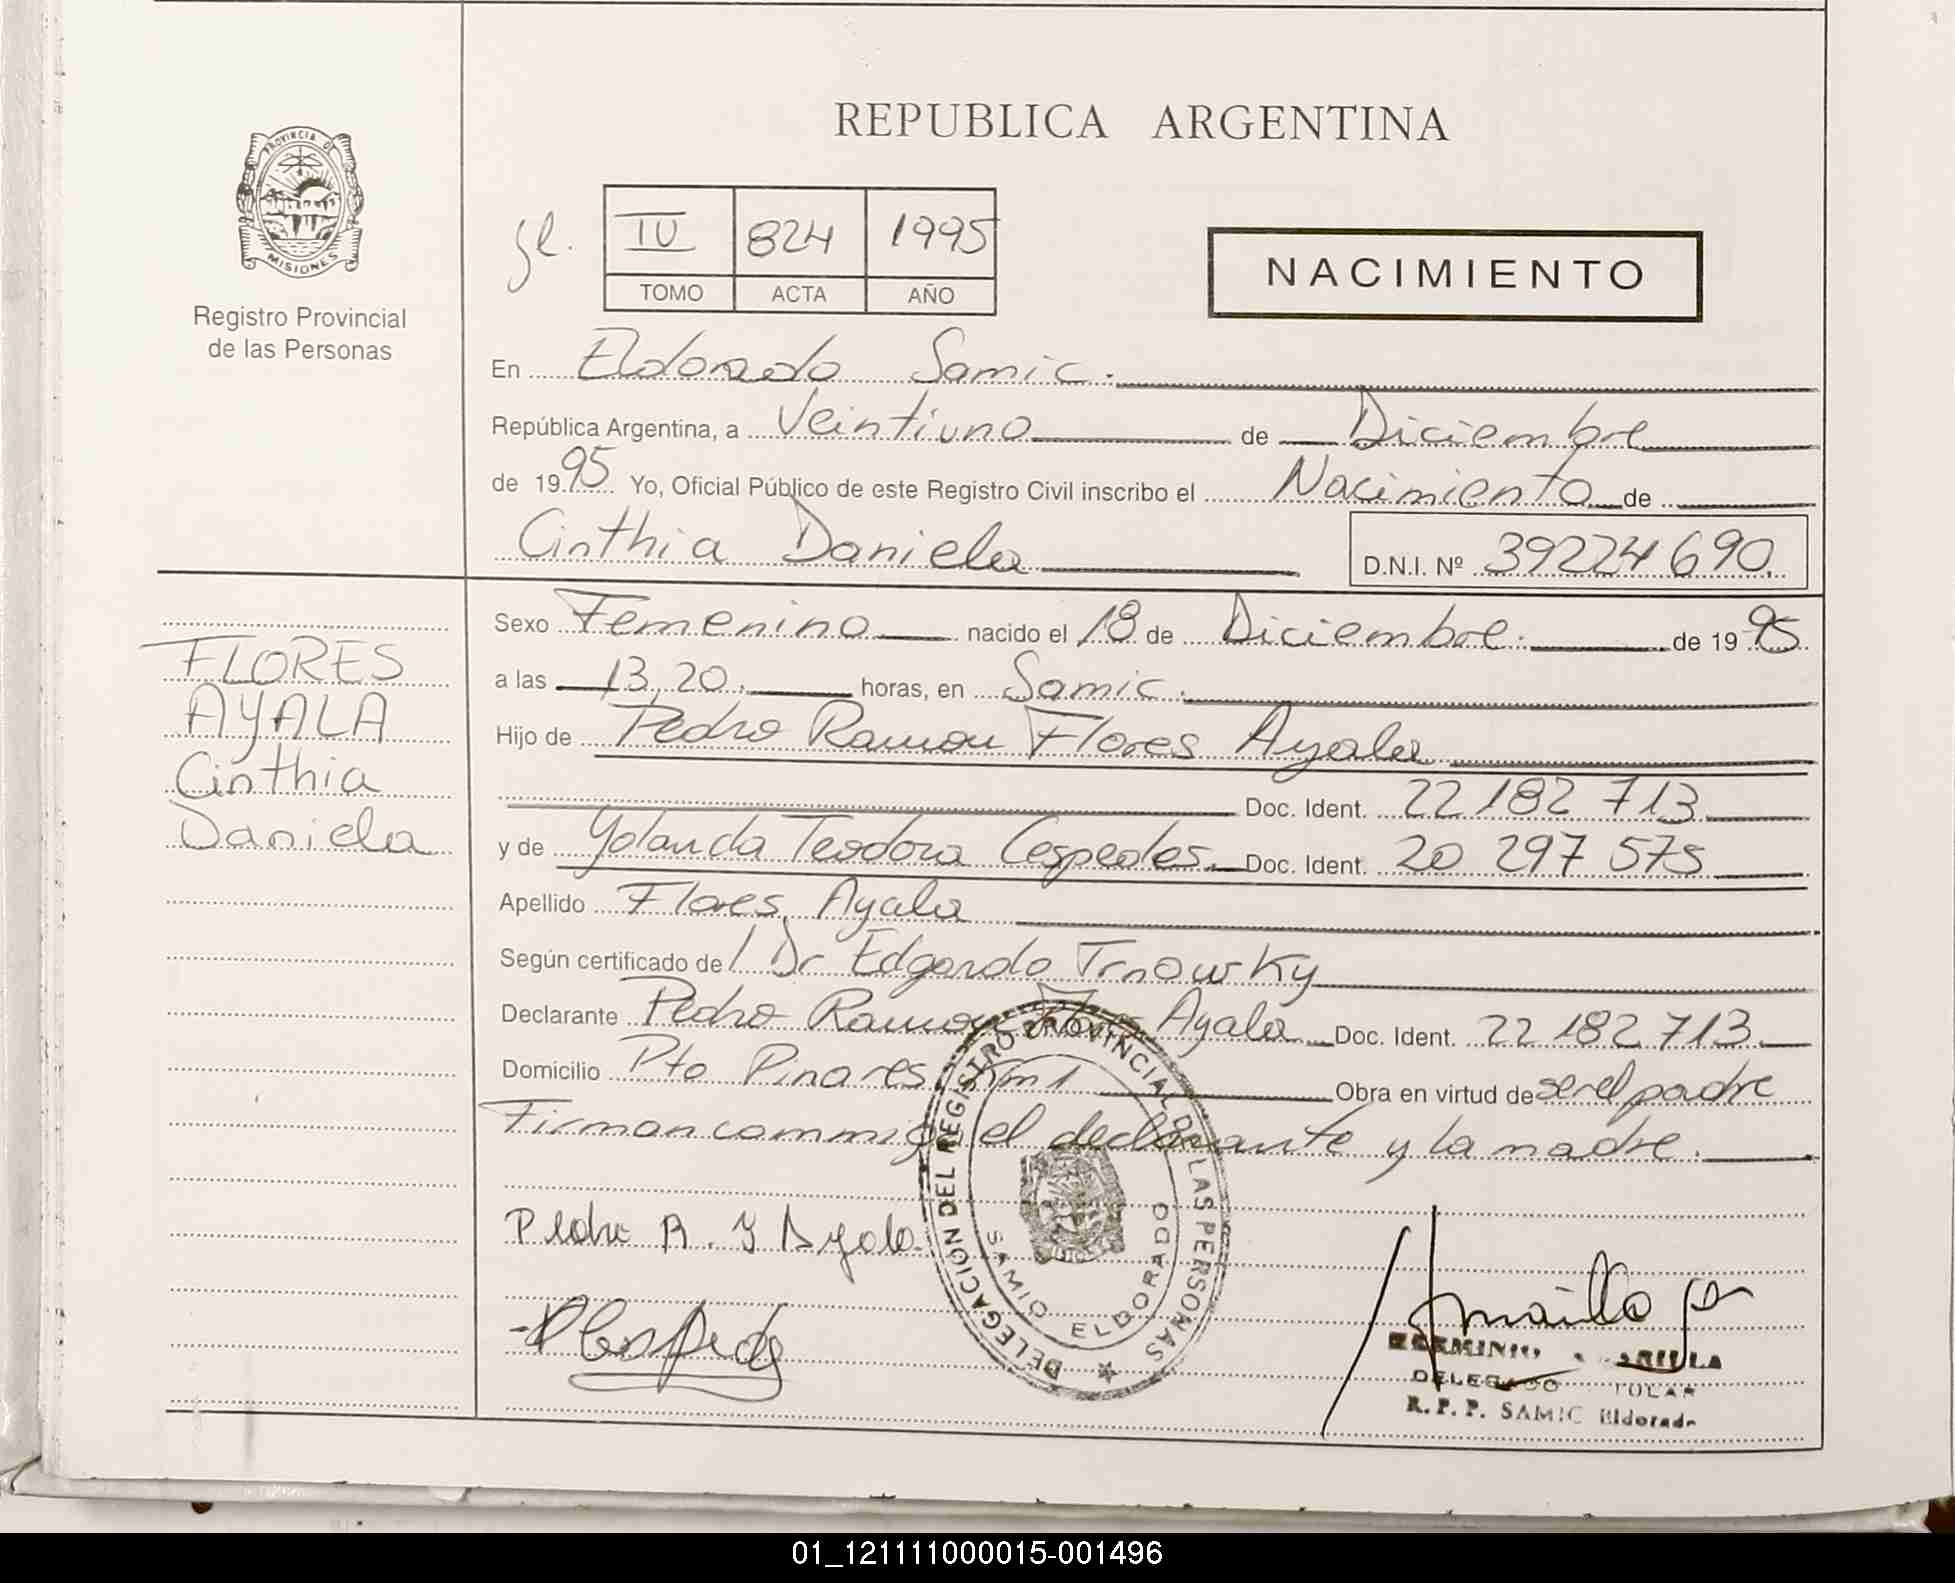 REPUBLICA ARGENTINA
PROVINCIA D
MISIONES
Registro Provincial
de las Personas
IV 824 1995
TOMO ACTA AÑO
NACIMIENTO
En Eldorado Samic.
República Argentina, a Veintiuno de Diciembre
de 1995 Yo, Oficial Público de este Registro Civil inscribo el Nacimiento de
Cinthia Daniela D.N.I. Nº 39224690.
FLORES
AYALA
Cinthia
Daniela
Sexo Femenino nacido el 18 de Diciembre. de 1995
a las 13,20. horas, en Samic.
Hijo de Pedro Ramon Flores Ayala
Doc. Ident. 22 182 713
y de Yolanda Teodora Cespedes. Doc. Ident. 20 297 575
Apellido Flores Ayala
Según certificado del Dr Edgardo Trnowky
Declarante Pedro Ramon Flores Ayala Doc. Ident. 22 182 713
Domicilio Pto Pinares Km 1 Obra en virtud de ser el padre
Firman conmigo el declarante y la madre.
DELEGACION DEL REGISTRO PROVINCIAL DE LAS PERSONAS
SAMIC ELDORADO
Pedro R. F Ayala.
R. P. P. SAMIC Eldorado
01_121111000015-001496